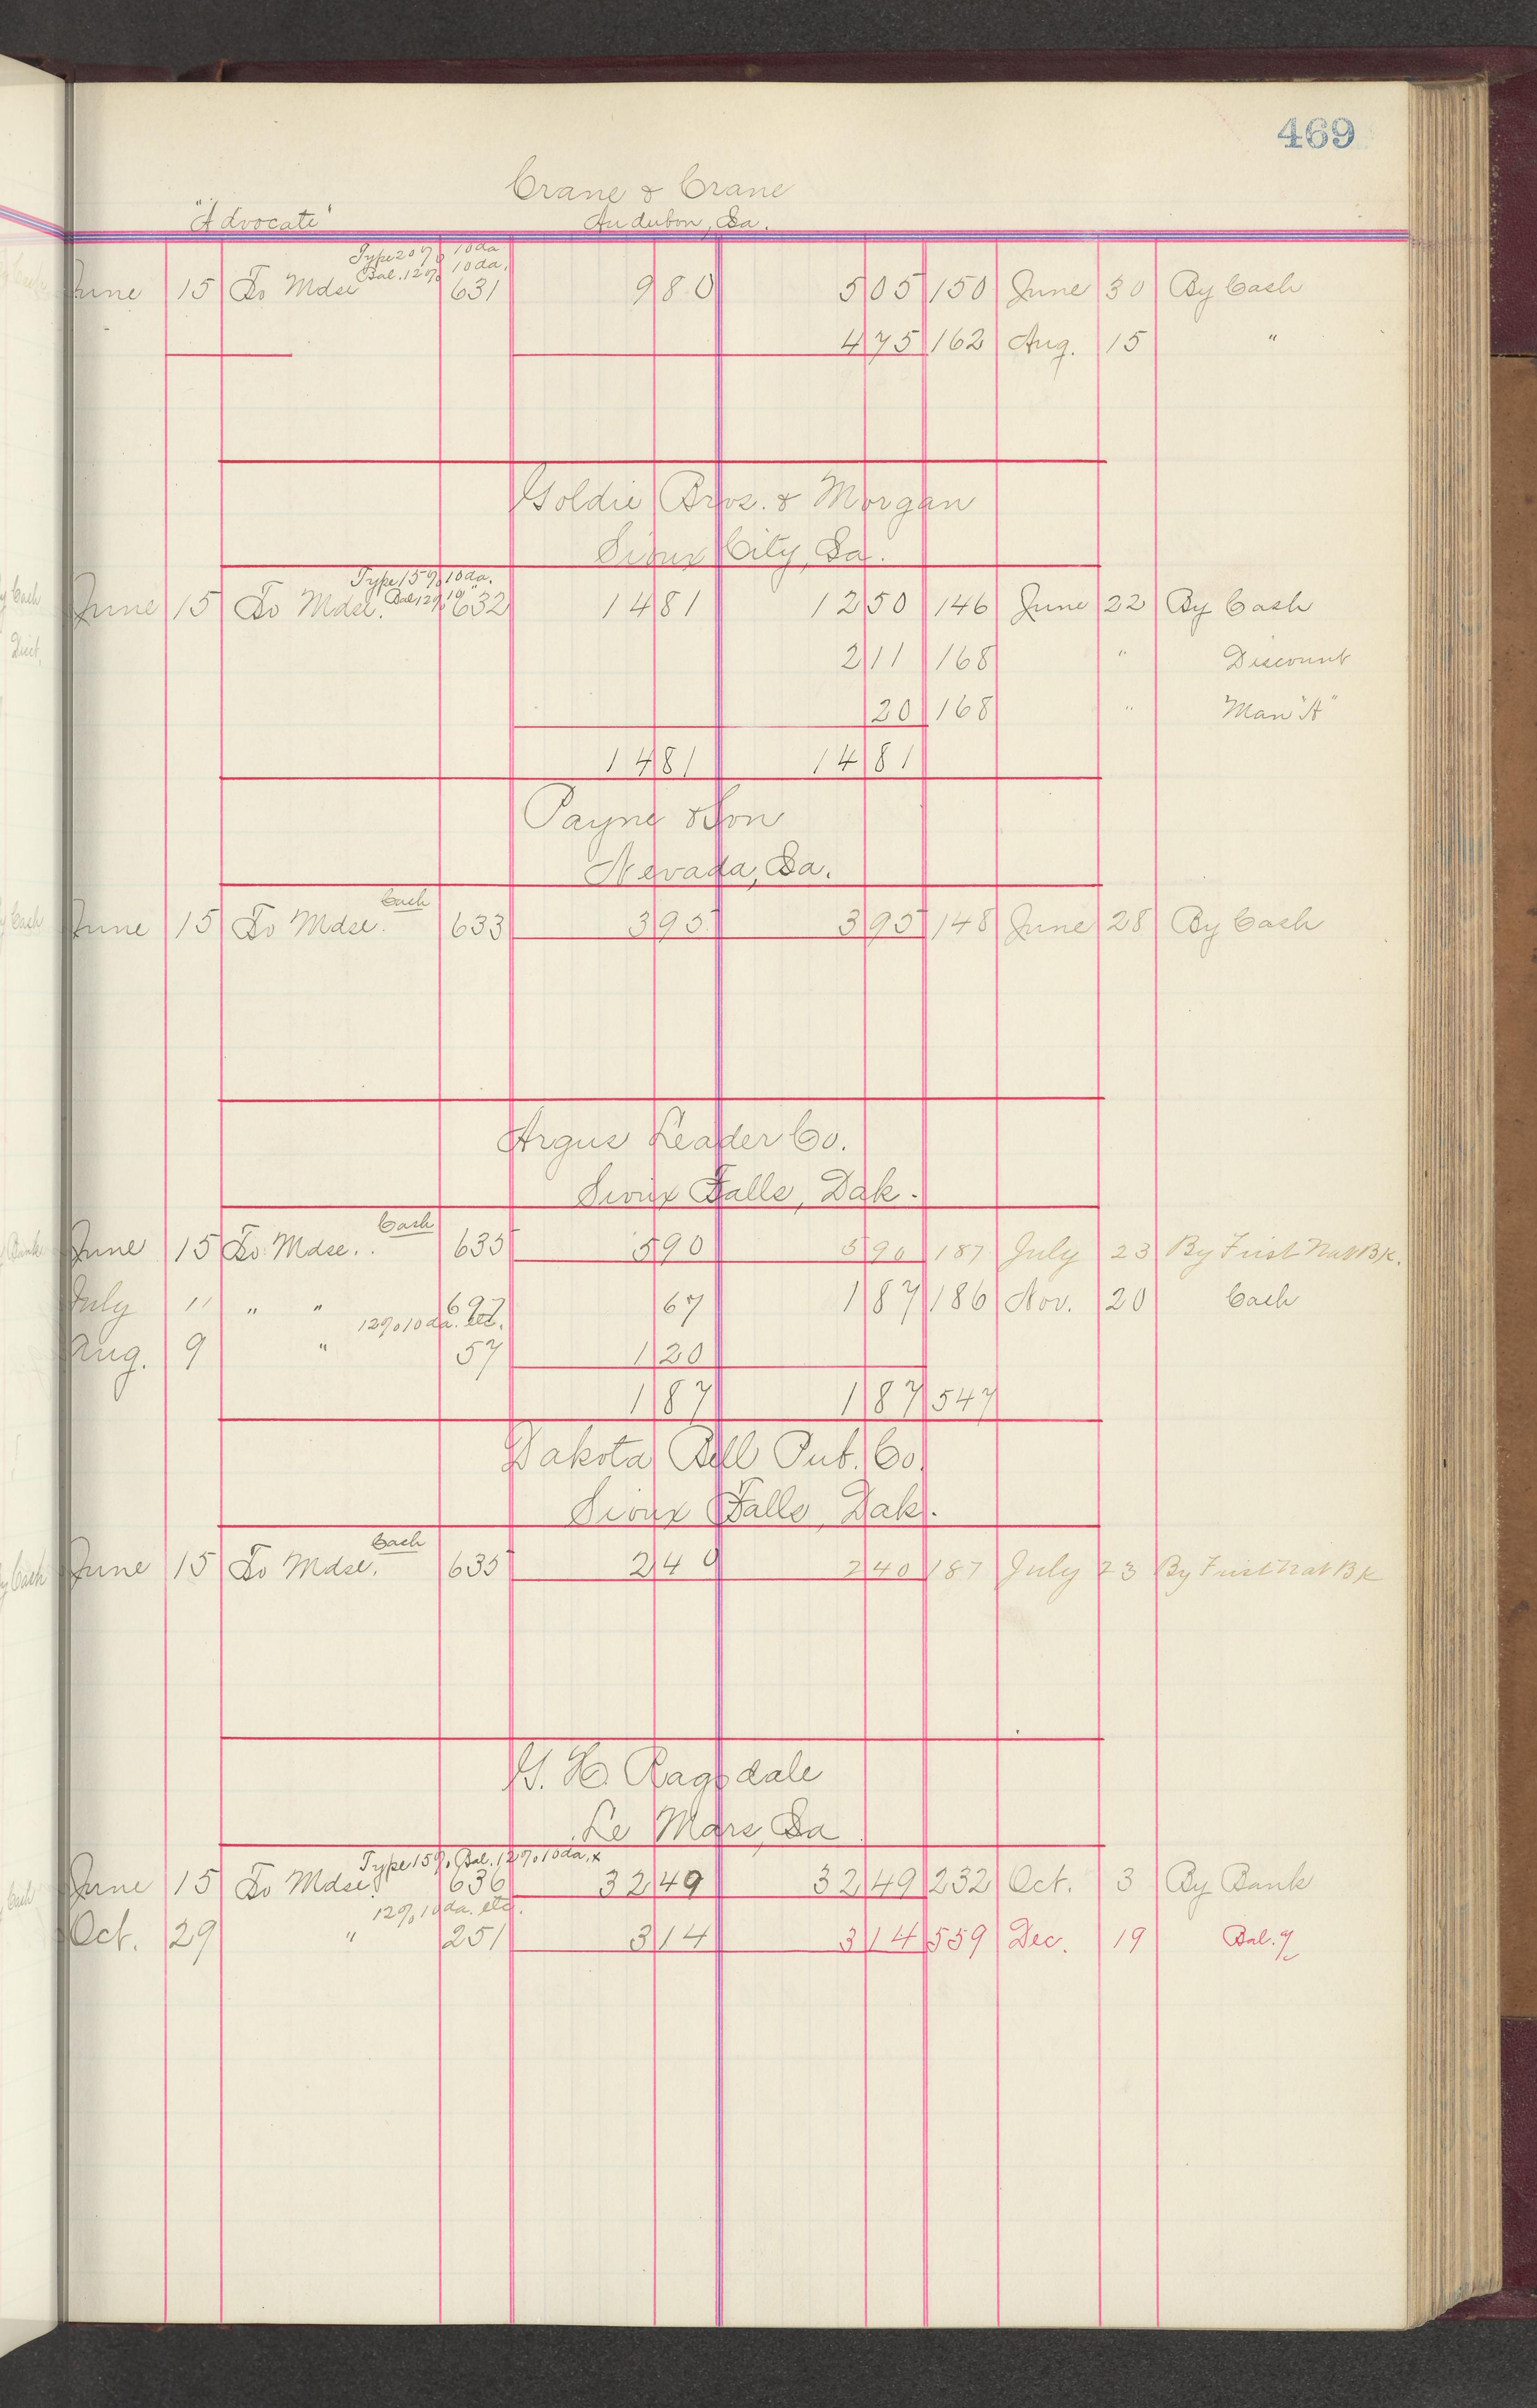 469
Crane & Crane
"Advocate" Audubon, Ia.
Type 20% 10 da
Bal. 12% 10 da.
June 15 To Mdse 631 9 80 5 05 150 June 30 By Cash
4 75 162 Aug. 15 "
Goldie Bros. & Morgan
Sioux City, Ia.
Type 15% 10 da.
Bal 12% 10 "
June 15 To Mdse. 632 14 81 12 50 146 June 22 By Cash
2 11 168 " Discount
20 168 " Man "A"
14 81 14 81
Payne & Son
Nevada, Ia.
Cash
June 15 To Mdse. 633 3 95 3 95 148 June 28 By Cash
Argus Leader Co.
Sioux Falls, Dak.
Cash
June 15 To Mdse. 635 5 90 5 90 187 July 23 By First Nat Bk.
July 11 " " 697 67 1 87 186 Nov. 20 Cash
12% 10 da. etc.
Aug. 9 " 57 1 20
1 87 1 87 547
Dakota Bell Pub. Co.
Sioux Falls, Dak.
Cash
June 15 To Mdse. 635 2 40 2 40 187 July 23 By First Nat Bk
G. H. Ragsdale
Le Mars, Ia
Type 15% Bal. 12% 10 da. x
June 15 To Mdse. 636 32 49 32 49 232 Oct. 3 By Bank
12% 10 da. etc.
Oct. 29 " 251 3 14 3 14 559 Dec. 19 Bal.